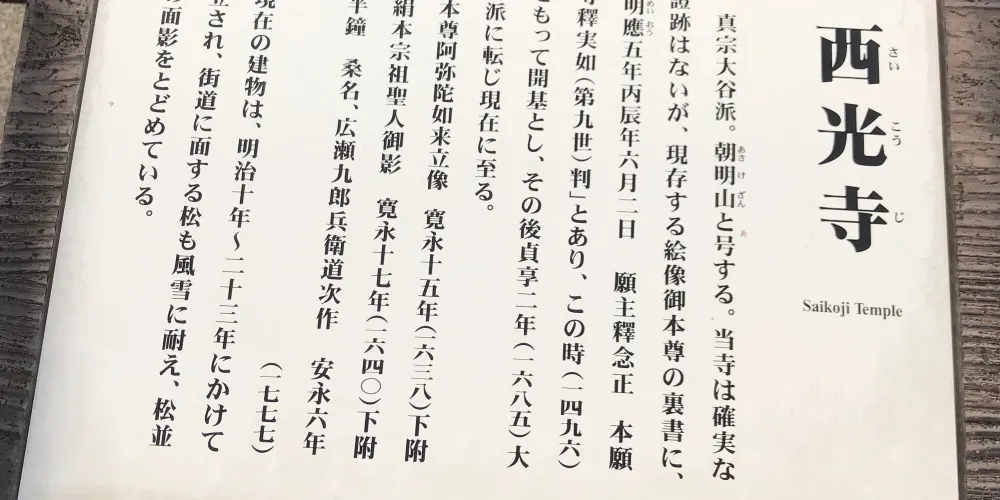 西光寺
さいこうじ
Saikoji Temple
真宗大谷派。朝明山と号する。当寺は確実な
證跡はないが、現存する絵像御本尊の裏書に、
明應五年丙辰年六月二日 願主釋念正 本願
釋実如(第九世)判」とあり、この時(一四九六)
もって開基とし、その後貞享二年(一六八五)大
派に転じ現在に至る。
本尊阿弥陀如来立像 寛永十五年(一六三八)下附
絹本宗祖聖人御影 寛永十七年(一六四〇)下附
半鐘 桑名、広瀬九郎兵衛道次作 安永六年
(一七七七)
現在の建物は、明治十年～二十三年にかけて
され、街道に面する松も風雪に耐え、松並
面影をとどめている。